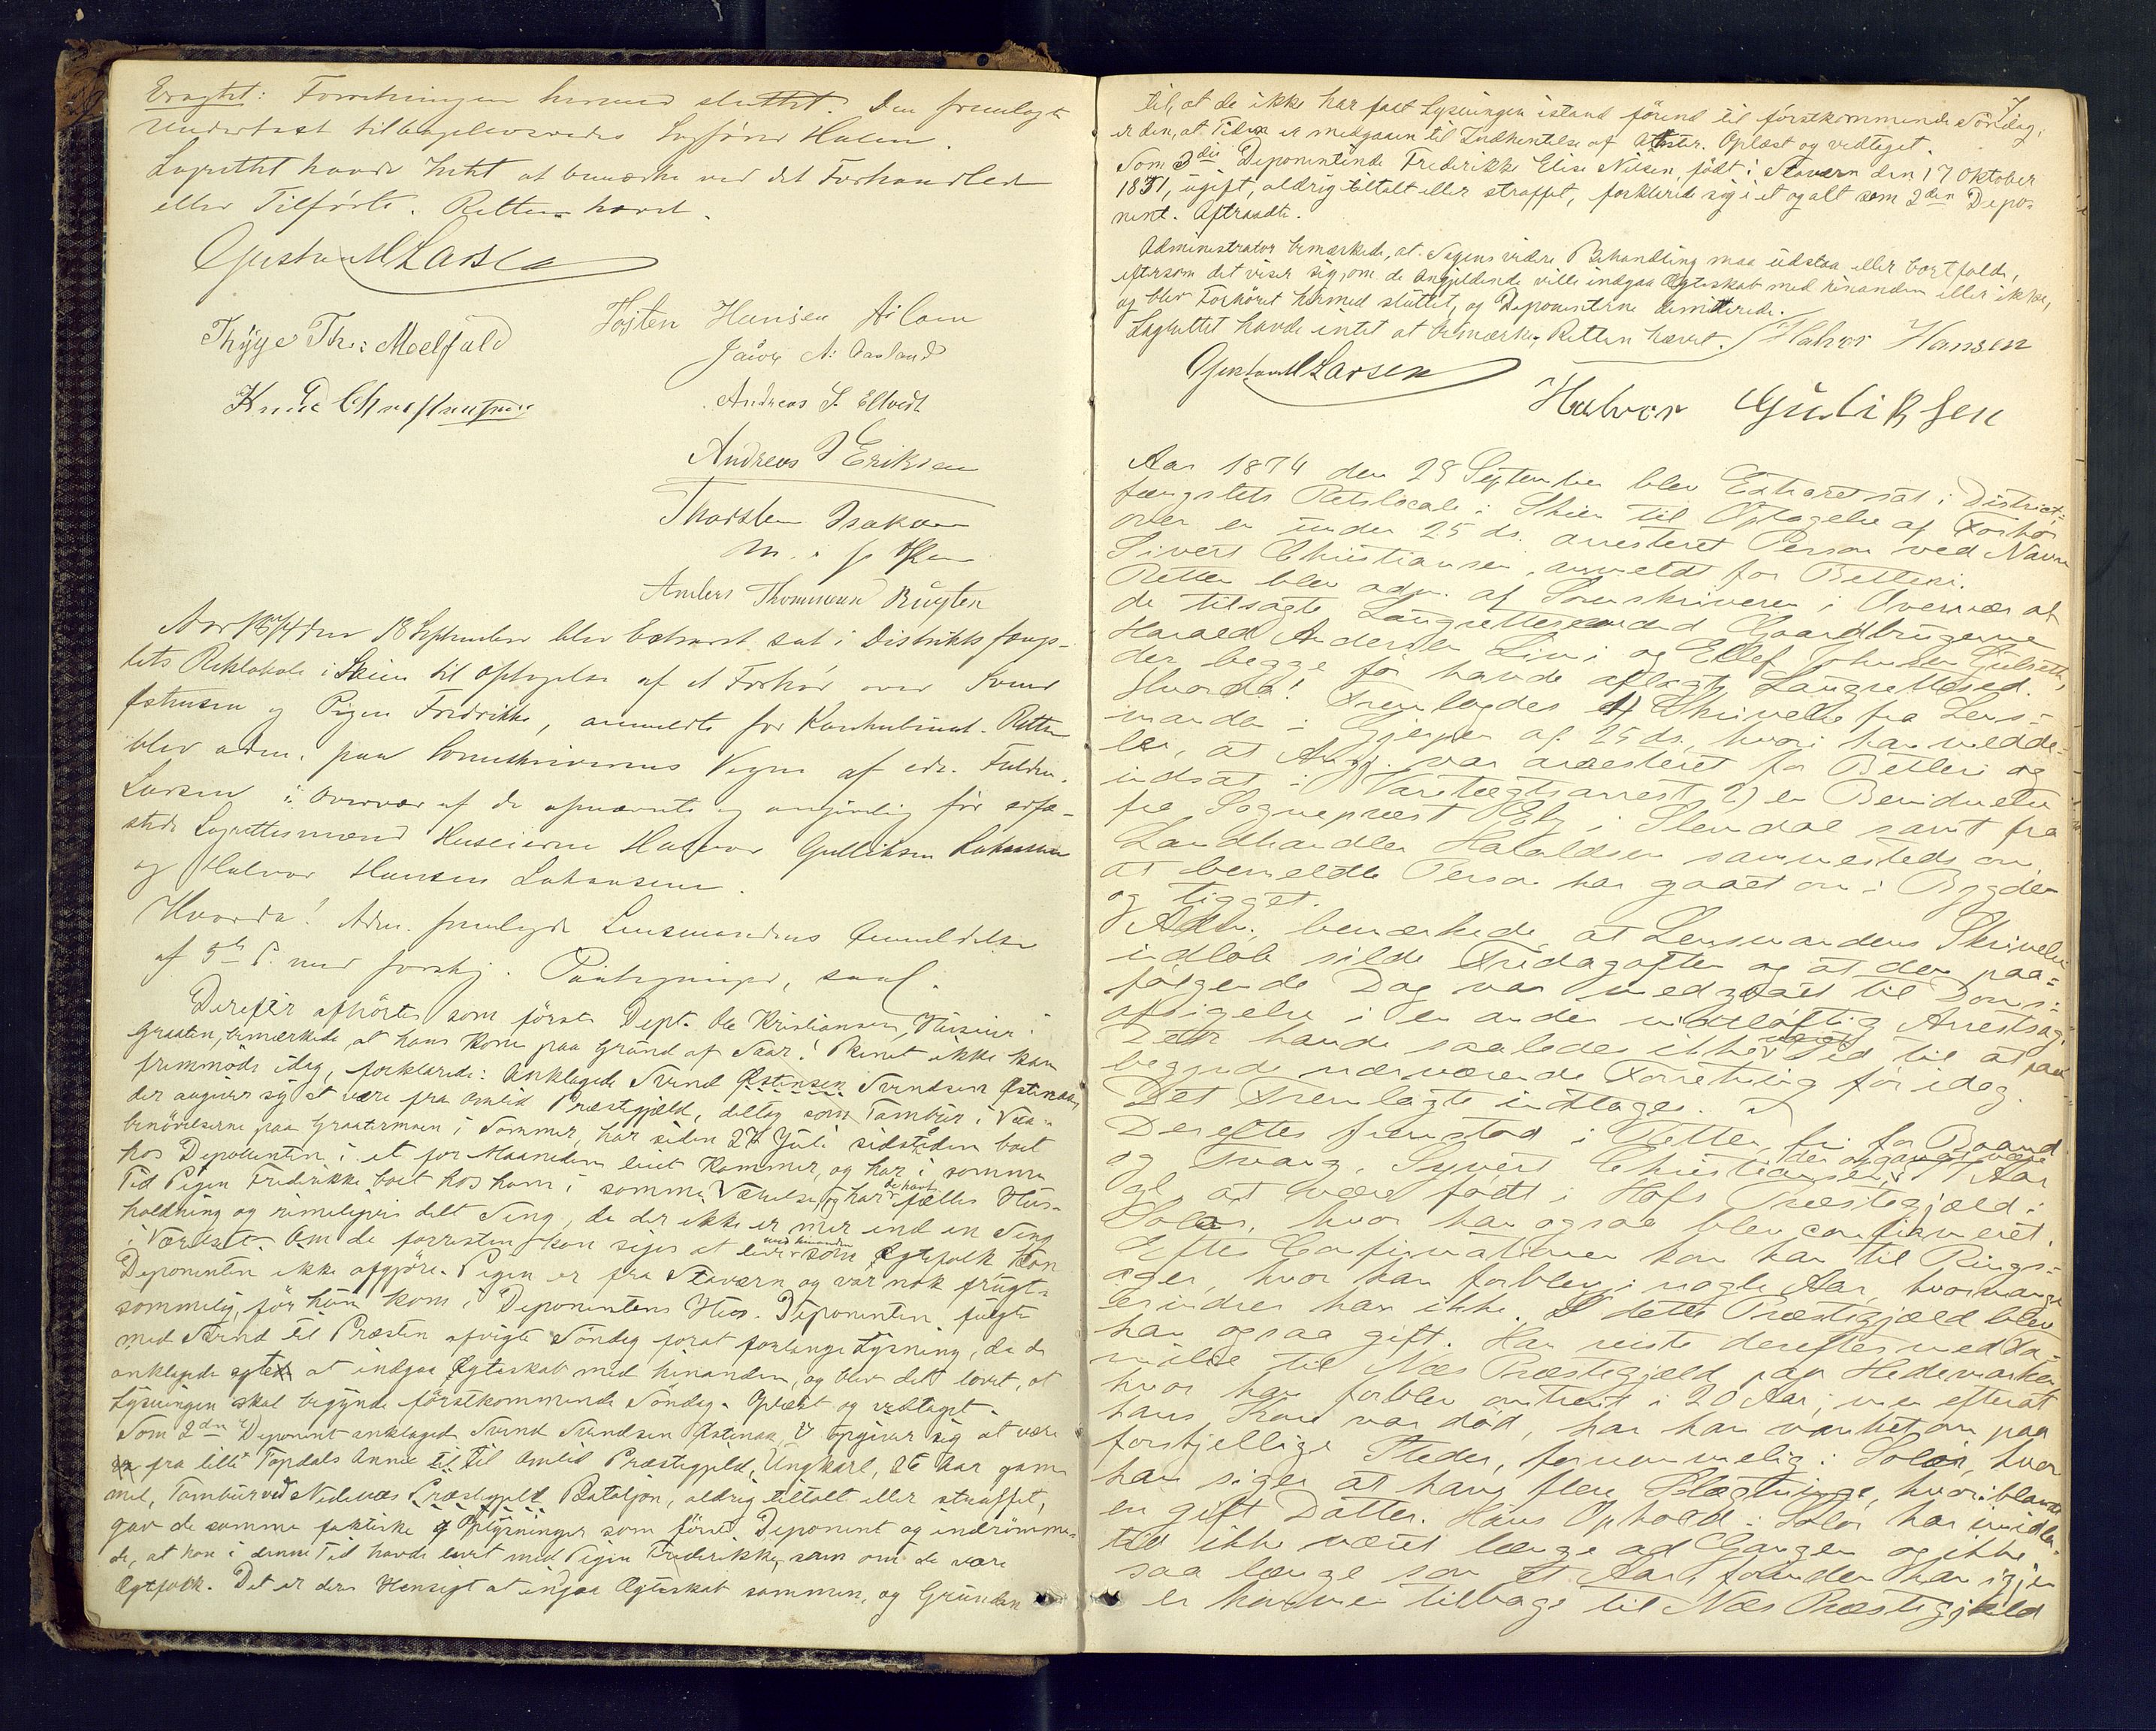 Eragtet: Forretningen hermed sluttet. Den fremlagte
tilbageleveredes Sagfører Holm.
Lagrettet havde Intet at bemærke ved det Forhandlede
eller Tilførte. Retten hævet.
Gustav M Larsen
Thyge Th: Moelfald
Hansen
Jacob A:
Knud Christensen
Andreas S.
Andreas J Eriksen
Thorsten Isaksen
Anders Thommesen
Aar 1874 den 18 September blev Extraret sat i Distriktsfæng-
slets Retslokale i Skien til Optagelse af et Forhør over Svend
Østensen og Pigen Fredrikke, anmeldte for Konkubinat. Retten
blev adm. paa Sorenskriverens Vegne af edv. Fuldm.
Larsen i Overvær af de opnævnte og angivelig før edfæ-
stede Lagrettesmænd Huseierne Halvor Gulliksen
og Halvor Hansen
Hvorda! Adm. fremlagde Lensmandens Anmeldelse
af 5te d. med forskj. Paategninger, saal.
Derefter afhørtes som første Dept. Ole Kristiansen, Huseier i
Graaten, bemærkede, at hans Kone paa Grund af Saar i Benet ikke kan
fremmøde idag, forklarede: Anklagede Svend Østensen Svendsen
der angiver sig at være fra Omlid Præstegjæld, deltog som Tambur i Vaa-
benøvelserne paa Graatenmoen i Sommer, har siden 27 Juli sidstleden boet
hos Deponenten i et for Maaneden leiet Kammer, og har i samme
Tid Pigen Fredrikke boet hos ham i samme Værelse, og har de havt fælles Hus-
holdning og rimeligvis delt Seng, da der ikke er mer end en Seng
i Værelset. Om de forresten kan siges at leve med hinanden som Ægtefolk kan
Deponenten ikke afgjøre. Pigen er fra Stavern og var nok frugt-
sommelig, før hun kom i Deponentens Hus. Deponenten fulgte
med Svend til Præsten afvigte Søndag forat forlange Lysning, da de
anklagede agted at indgaa Ægteskab med hinanden, og blev det lovet, at
Lysningen skal begynde førstkommende Søndag. Oplæst og vedtaget.
Som 2den Deponent anklagede Svend Svendsen opgiver sig at være
fra lille Topdals Annex til Omlid Præstegjeld, Ungkarl, 26 Aar gam-
mel, Tambur ved Nedenæs Præstegjeld Bataljon, aldrig tiltalt eller straffet,
gav de samme faktiske Oplysninger som første Deponent og indrømme-
de, at han i denne Tid havde levet med Pigen Fredrikke, som om de være
Ægtefolk. Det er deres Hensigt at indgaa Ægteskab sammen, og Grunden
7
til, at de ikke har faaet Lysningen istand førend til førstkommende Søndag,
er den, at Tiden er medgaaen til Indhentelse af Attester. Oplæst og vedtaget.
Som 3die Deponentinde Frederikke Elise Nilsen, født i Stavern den 17 Oktober
1851, ugift, aldrig tiltalt eller straffet, forklarede sig i et og alt som 2den Depo-
nent. Aftraadte.
Administrator bemærkede, at Sagens videre Behandling maa udstaa eller bortfalde,
eftersom det viser sig, om de Angjeldende ville indgaa Ægteskab med hinanden eller ikke,
og blev Forhøret hermed sluttet, og Deponenterne demitterede.
Lagrettet havde intet at bemærke, Retten hævet. Halvor Hansen
Gustav M Larsen
Halvor Guliksen
Aar 1874 den 28 September blev Extraret sat i District-
fængslets Retslocale i Skien til Optagelse af Forhør
over en under 25 ds. arresteret Person ved Navn
Sivert Christiansen, anmeldt for Betleri.
Retten blev adm. af Sorenskriveren i Overvær af
de tilsagte Laugrettesmænd Gaardbrugerne
Harald Andersen Limi og Ellef Johnsen Gulseth,
der begge før havde aflagt Laugrettesed.
Hvorda! Fremlagdes 1) Skrivelse fra Lens-
manden i Gjerpen af 25 ds., hvori han medde-
ler, at Angj. var arresteret for Betleri og
indsat i Varetægtsarrest 2) en Bevidnelse
fra Sognepræst Eby i Slemdal samt fra
Landhandler Haraldsen sammesteds om
at bemeldte Person har gaaet om i Bygden
og tigget.
Adm. bemærkede, at Lensmandens Skrivelse
indløb silde Fredagaften og at den paa-
følgende Dag var medgaaet til Doms-
afsigelse i en anden vidtløftig Arrestsag.
Der havde saaledes ikke været Tid til at paa-
begynde nærværende Forretning før idag.
Det Fremlagte indtages.
Derefter fremstod i Retten, fri for Baand
og Tvang, Syvert Christiansen, der opgav at være 77 Aar
gl., at være født i Hofs Præstegjæld i
Solør, hvor han ogsaa blev confirmeret.
Efter Confirmationen kom han til Rings-
ager, hvor han forblev i nogle Aar, hvormange
erindrer han ikke. I dette Præstegjæld blev
han ogsaa gift. Han reiste derefter med Fa-
milie til Næs Præstegjæld paa Hedemarken,
hvor han forblev omtrent i 20 Aar; men efterat
hans Kone var død, har han vanket om paa
forskjellige Steder, fornemmelig i Solør, hvor
han siger at have flere Slægtninge, hvoriblandt
en gift Datter. Hans Ophold i Solør har imidler-
tid ikke været længe ad Gangen og ikke
saa længe som et Aar, førinden han igjen
er kommen tilbage til Næs Præstegjæld